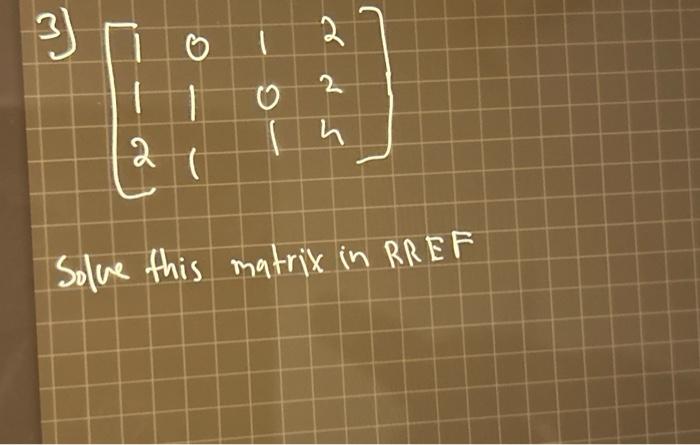 3) 1 0 1 2
1 1 0 2
2 1 1 4
Solve this matrix in RREF